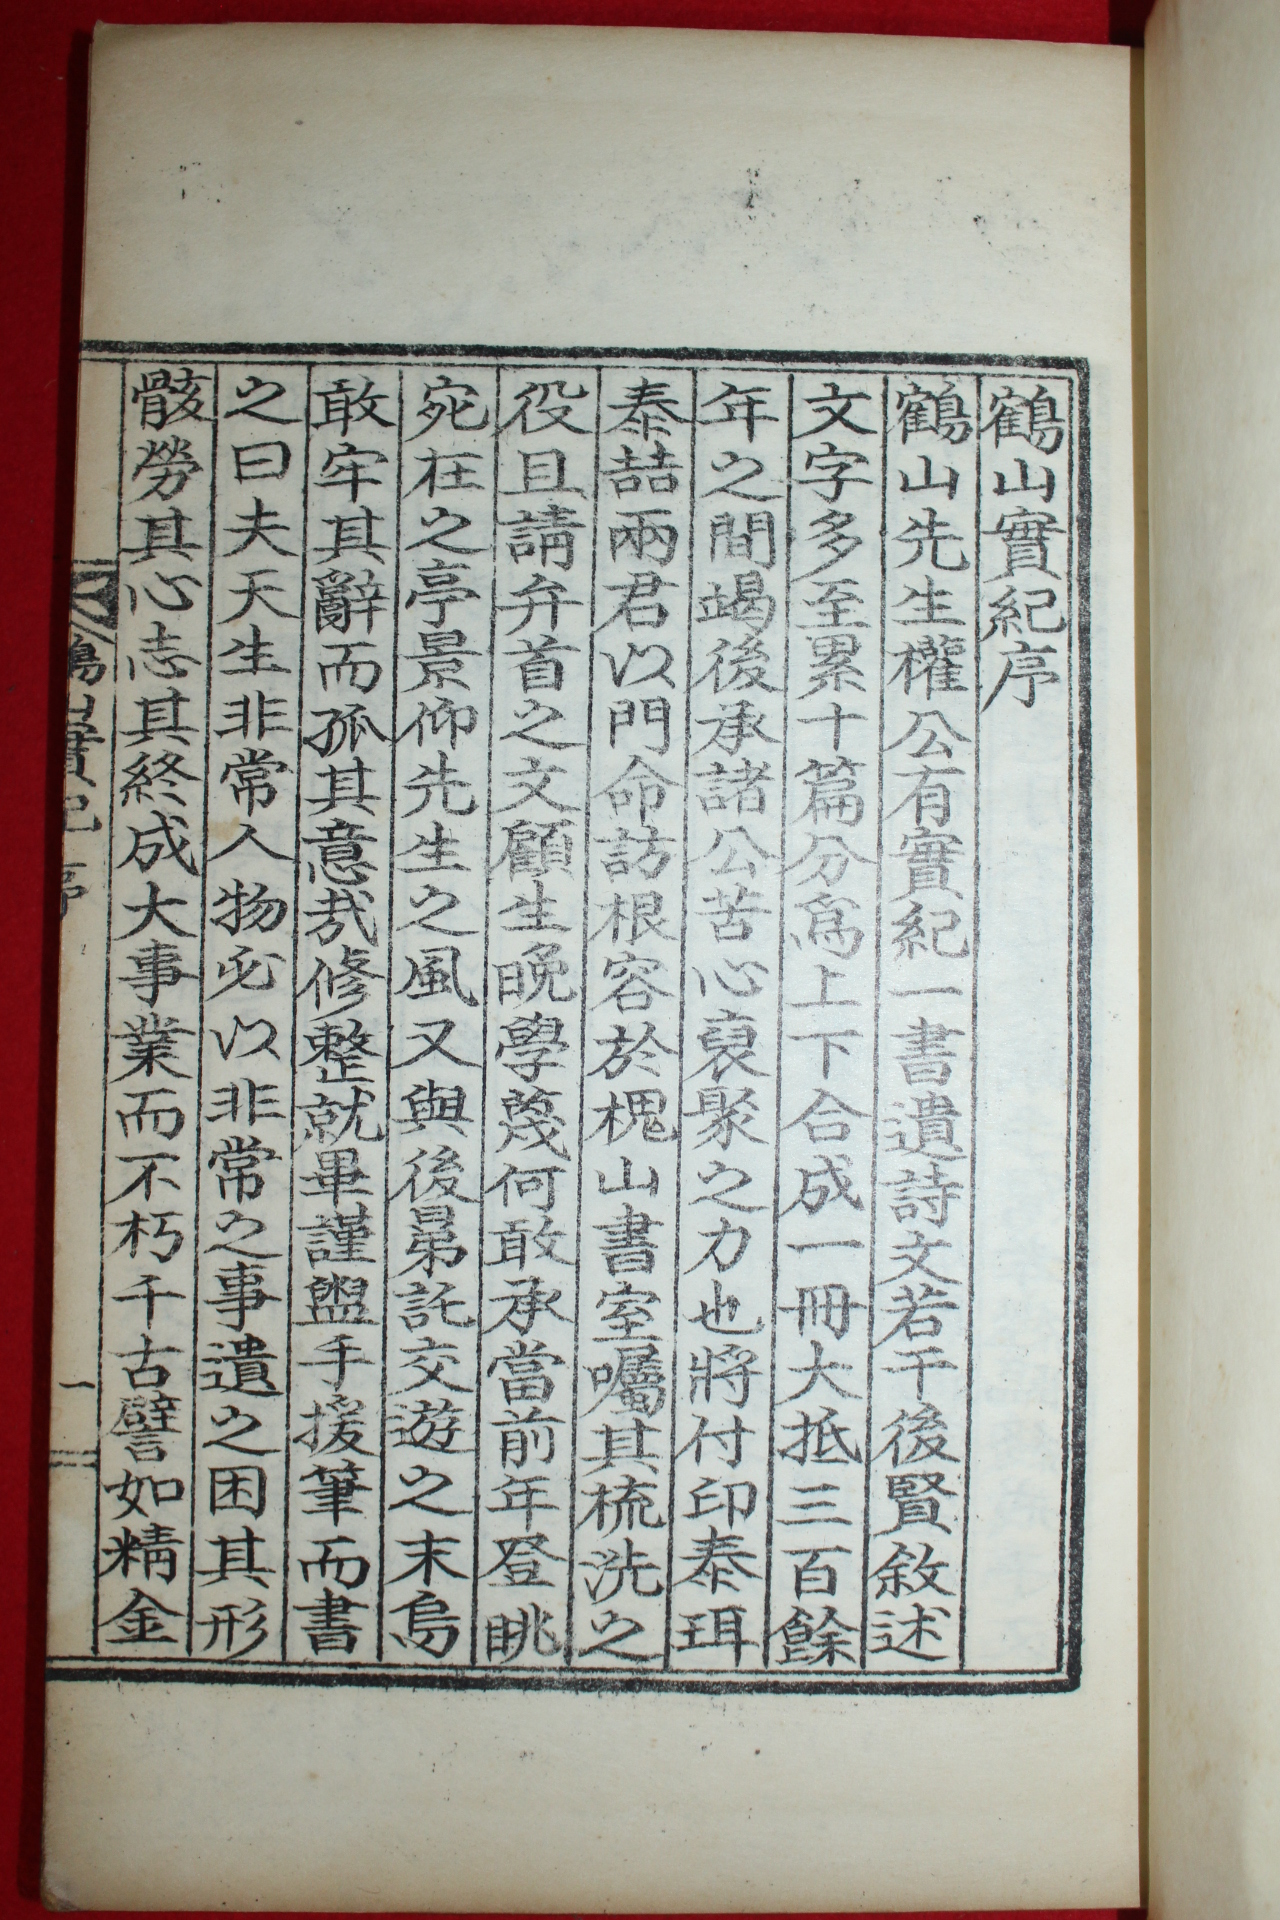 鶴山實紀序
鶴山先生權公有實紀一書遺詩文若干後賢敘述
文字多至累十篇分爲上下合成一冊大抵三百餘
年之間竭後承諸公苦心裒聚之力也將付印泰珥
泰喆兩君以門命訪根容於槐山書室囑其梳洗之
役且請弁首之文顧生晩學蔑何敢承當前年登眺
宛在之亭景仰先生之風又與後昆託交遊之末烏
敢牢其辭而孤其意哉修整就畢謹盥手援筆而書
之曰夫天生非常人物必以非常之事遺之困其形
骸勞其心志其終成大事業而不朽千古譬如精金
鶴山實紀 序
一